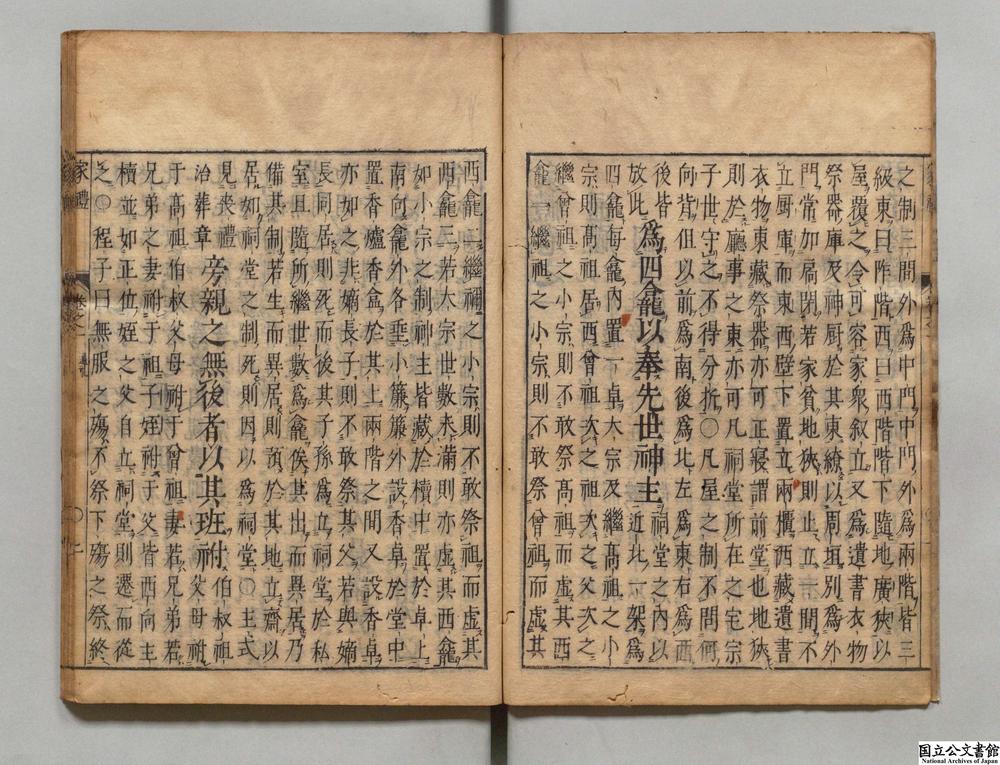 之制三間外爲中門中門外爲兩階皆三
級東曰阼階西曰西階階下隨地廣狹以
屋覆之令可容家衆叙立又爲遺書衣物
祭器庫及神厨於其東繚以周垣別爲外
門常加扃閉若家貧地狹則止立一間不
立厨庫而東西壁下置立兩櫃西藏遺書
衣物東藏祭器亦可正寢謂前堂也地狹
則於廳事之東亦可凡祠堂所在之宅宗
子世守之不得分析〇凡屋之制不問何
向背但以前爲南後爲北左爲東右爲西
後皆放此
爲四龕以奉先世神主
祠堂之內以近北一架爲
四龕每龕內置一卓大宗及繼高祖之小
宗則髙祖居西曾祖次之祖次之父次之
繼曾祖之小宗則不敢祭髙祖而虛其西
龕一繼祖之小宗則不敢祭曾祖而虛其
西龕二繼禰之小宗則不敢祭祖而虛其
西龕三若大宗世數未滿則亦虛其西龕
如小宗之制神主皆藏於櫝中置於卓上
南向龕外各垂小簾簾外設香卓於堂中
置香爐香盒於其上兩階之間又設香卓
亦如之非嫡長子則不敢祭其父若與嫡
長同居則死而後其子孫爲立祠堂於私
室且隨所繼世數爲龕俟其出而異居乃
備其制若生而異居則預於其地立齋以
居如祠堂之制死則因以爲祠堂〇主式
見喪禮治葬章
旁親之無後者以其班祔
伯叔祖父母祔
于高祖伯叔父母祔于曾祖妻若兄弟若
兄弟之妻祔于祖子姪祔于父皆西向主
櫝並如正位姪之父自立祠堂則遷而從
之〇程子曰無服之殤不祭下殤之祭終
家禮
国立公文書館
National Archives of Japan